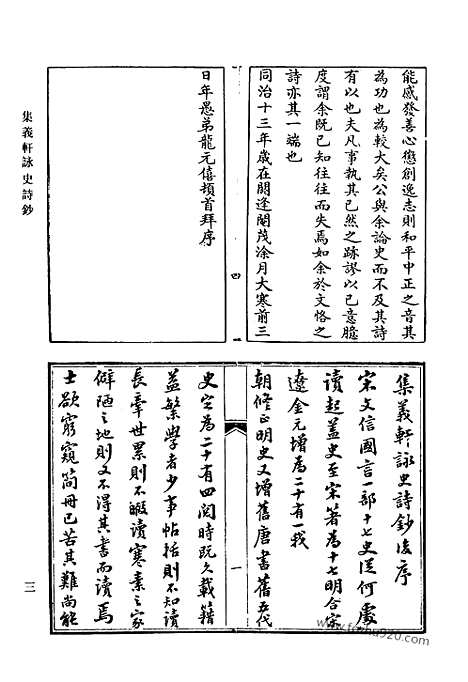 能感發善心懲創逸志則和平中正之音其
為功也為較大矣公與余論史而不及其詩
有以也夫凡事執其已然之跡謬以已意臆
度謂余既已知往往而失焉如余於文恪之
詩亦其一端也
同治十三年歲在閼逢閹茂涂月大寒前三
四
日年愚弟龍元僖頓首拜序
集義軒詠史詩鈔
集義軒詠史詩鈔後序
宋文信國言一部十七史從何處
讀起蓋史至宋著為十七明合宋
遼金元增為二十有一我
朝修正明史又增舊唐書舊五代
一
史定為二十有四閱時既久載籍
益繁學者少事帖括則不知讀
長牽世累則不暇讀寒素之家
僻陋之地則又不得其書而讀焉
士欲窮窺簡冊已苦其難尚能
三